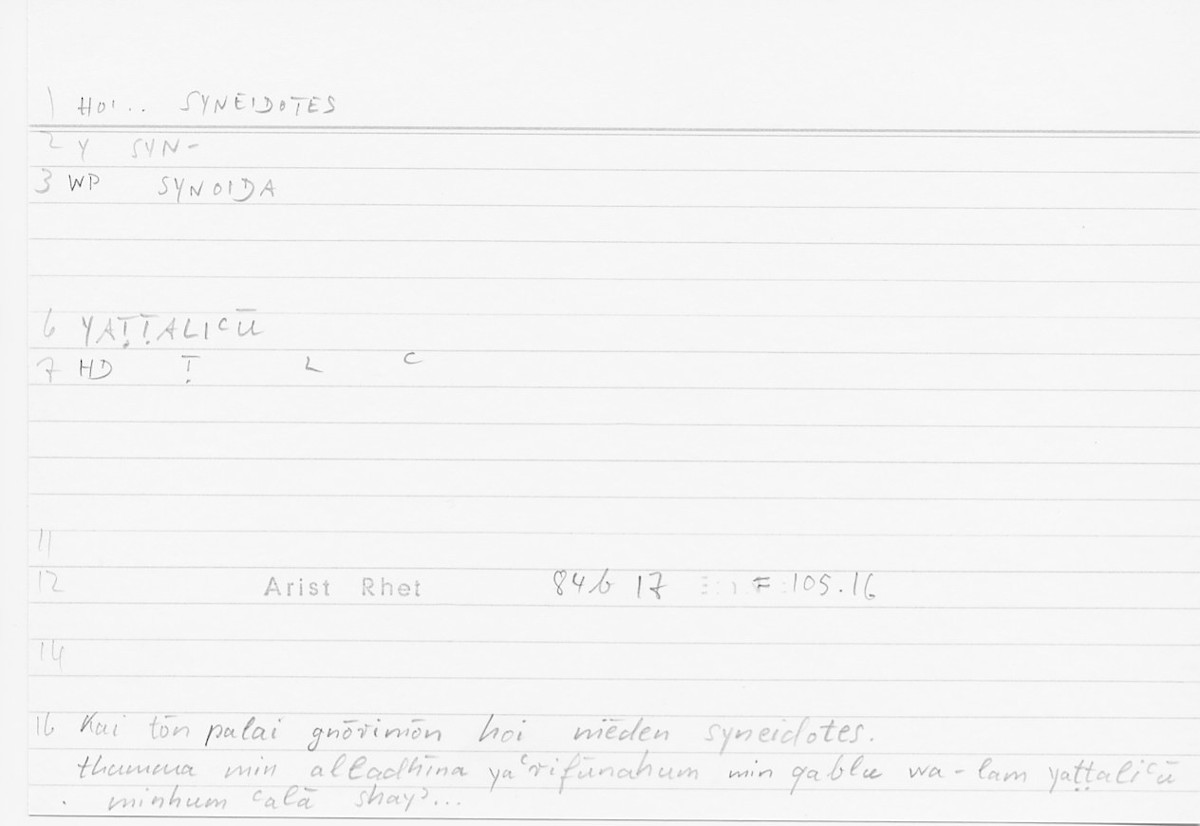 1 HOI.. SYNEIDOTES
2 Y SYN-
3 WP SYNOIDA
6 YAṬṬALIᶜŪ
7 HD Ṭ L ᶜ
11
12 Arist Rhet 84b 17 = 105.16
14
16 Kai tōn palai gnōrimōn hoi mēden syneidotes.
thumma min alladhīna yaᶜrifūnahum min qablu wa-lam yaṭṭaliᶜū
. minhum ᶜalā shayʾ...